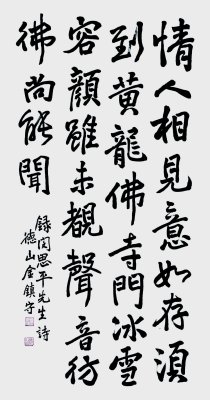 情人相見意如存須
到黃龍佛寺門冰雪
容顏雖未覩聲音彷
彿尚能聞
錄閔思平先生詩
德山金鎮守